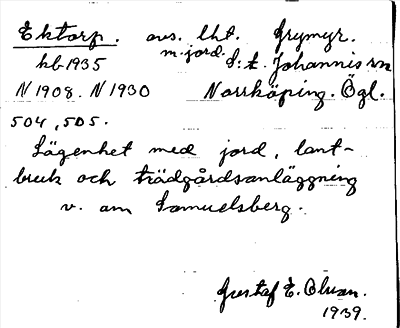 Ektorp. avs. lht. Grymyr.
kb 1935 m. jord. S:t Johannis sn
N 1908. N 1930 Norrköping. Ögl.
504, 505.
Lägenhet med jord, lant-
bruk och trädgårdsanläggning
v. om Samuelsberg.
Gustaf E. Olsson.
1939.